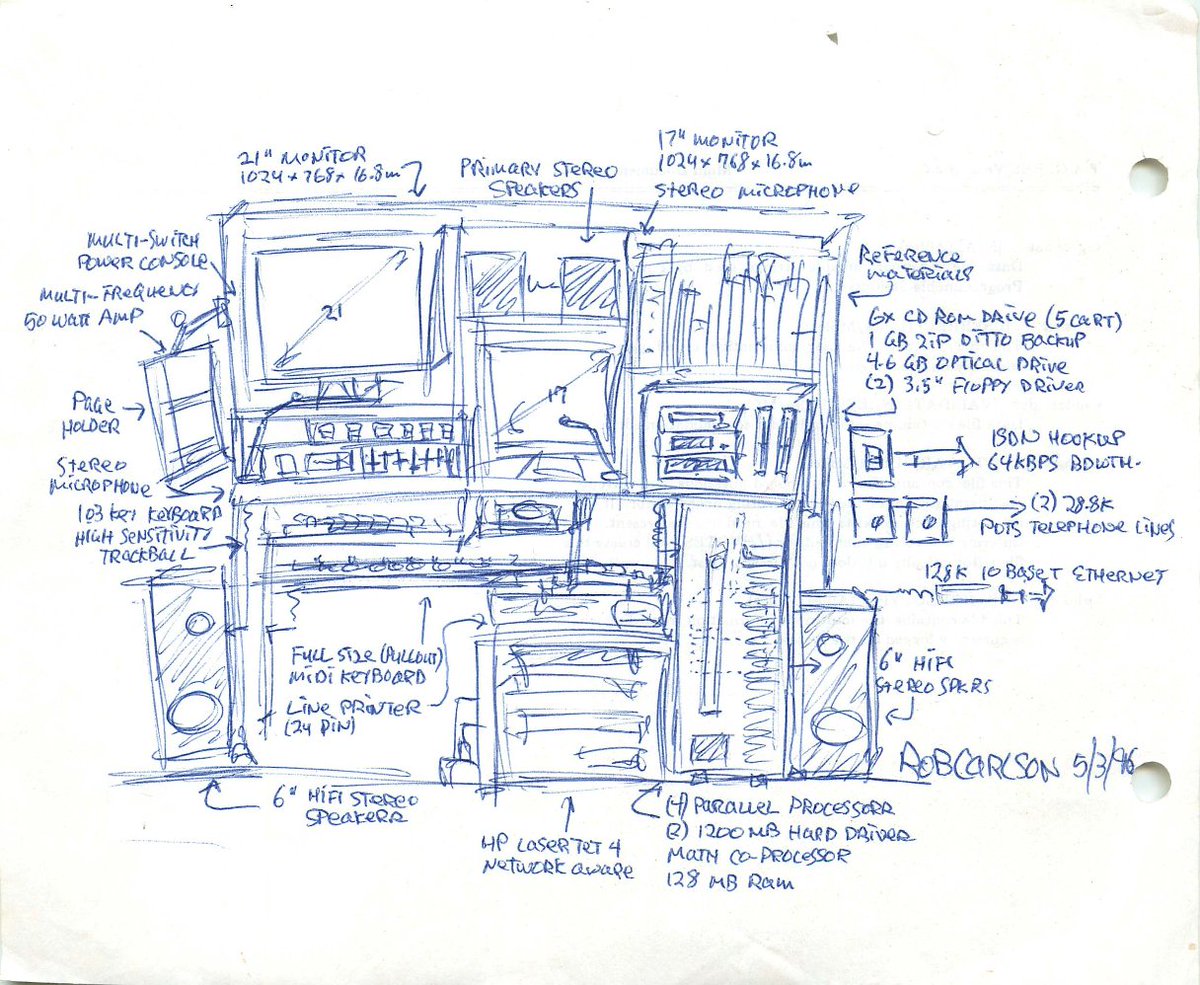 21" MONITOR
1024 x 768 x 16.8m
PRIMARY STEREO
SPEAKERS
17" MONITOR
1024 x 768 x 16.8m
STEREO MICROPHONE
MULTI-SWITCH
POWER CONSOLE
MULTI-FREQUENCY
50 WATT AMP
PAGE
HOLDER
STEREO
MICROPHONE
103 KEY KEYBOARD
HIGH SENSITIVITY
TRACKBALL
21
17
REFERENCE
MATERIALS
6X CD ROM DRIVE (5 CART)
1 GB ZIP DITTO BACKUP
4.6 GB OPTICAL DRIVE
(2) 3.5" FLOPPY DRIVES
ISDN HOOKUP
64KBPS BDWTH.
(2) 28.8K
POTS TELEPHONE LINES
128K 10 BASE T ETHERNET
FULL SIZE (PULLOUT)
MIDI KEYBOARD
LINE PRINTER
(24 PIN)
6" HIFI
STEREO SPKRS
ROB CARLSON 5/3/96
6" HIFI STEREO
SPEAKERS
HP LASERJET 4
NETWORK AWARE
(4) PARALLEL PROCESSORS
(2) 1200 MB HARD DRIVES
MATH CO-PROCESSOR
128 MB RAM